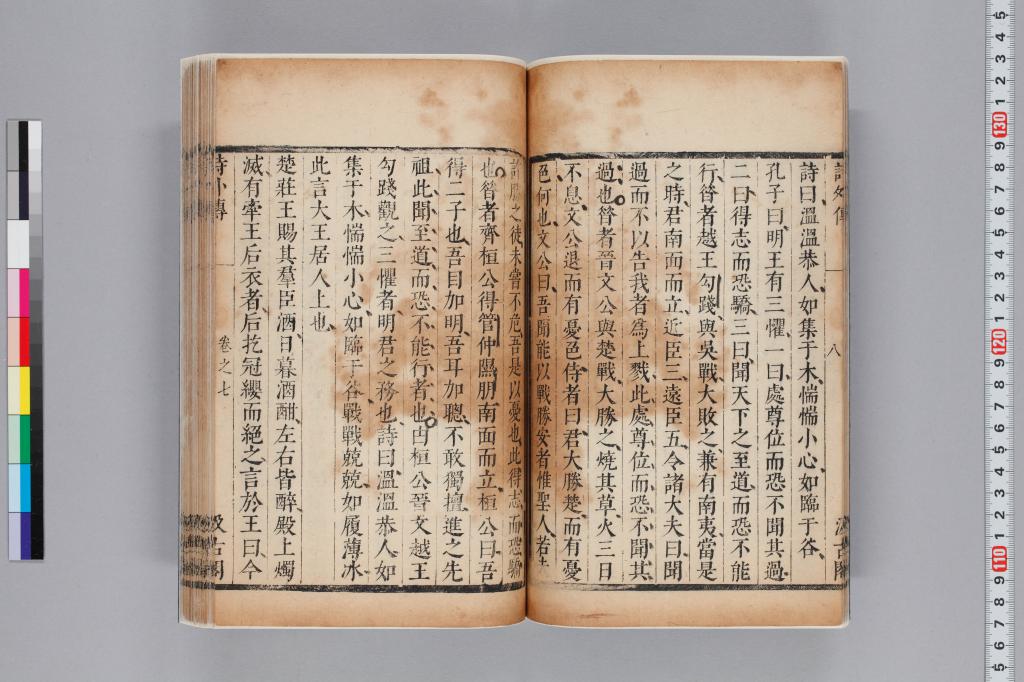 詩外傳
八
汲古閣
詩曰溫溫恭人如集于木惴惴小心如臨于谷
孔子曰明王有三懼一曰處尊位而恐不聞其過
二曰得志而恐驕三曰聞天下之至道而恐不能
行昝者越王勾踐與吳戰大敗之兼有南夷當是
之時君南面而立近臣三遠臣五令諸大夫曰聞
過而不以告我者為上戮此處尊位而恐不聞其
過也昝者晉文公與楚戰大勝之燒其草火三日
不息文公退而有憂色侍者曰君大勝楚而有憂
色何也文公曰吾聞能以戰勝安者惟聖人若
詐勝之徒未嘗不危吾是以憂也此得志而恐驕
也昝者齊桓公得管仲隰朋南面而立桓公曰吾
得二子也吾目加明吾耳加聰不敢獨擅進之先
祖此聞至道而恐不能行者也由桓公晉文越王
勾踐觀之三懼者明君之務也詩曰溫溫恭人如
集于木惴惴小心如臨于谷戰戰兢兢如履薄冰
此言大王居人上也
楚莊王賜其羣臣酒日暮酒酣左右皆醉殿上燭
滅有牽王后衣者后扢冠纓而絕之言於王曰今
詩外傳
卷之七
汲古閣
5 6 7 8 9 110 1 2 3 4 5 6 7 8 9 120 1 2 3 4 5 6 7 8 9 130 1 2 3 4 5